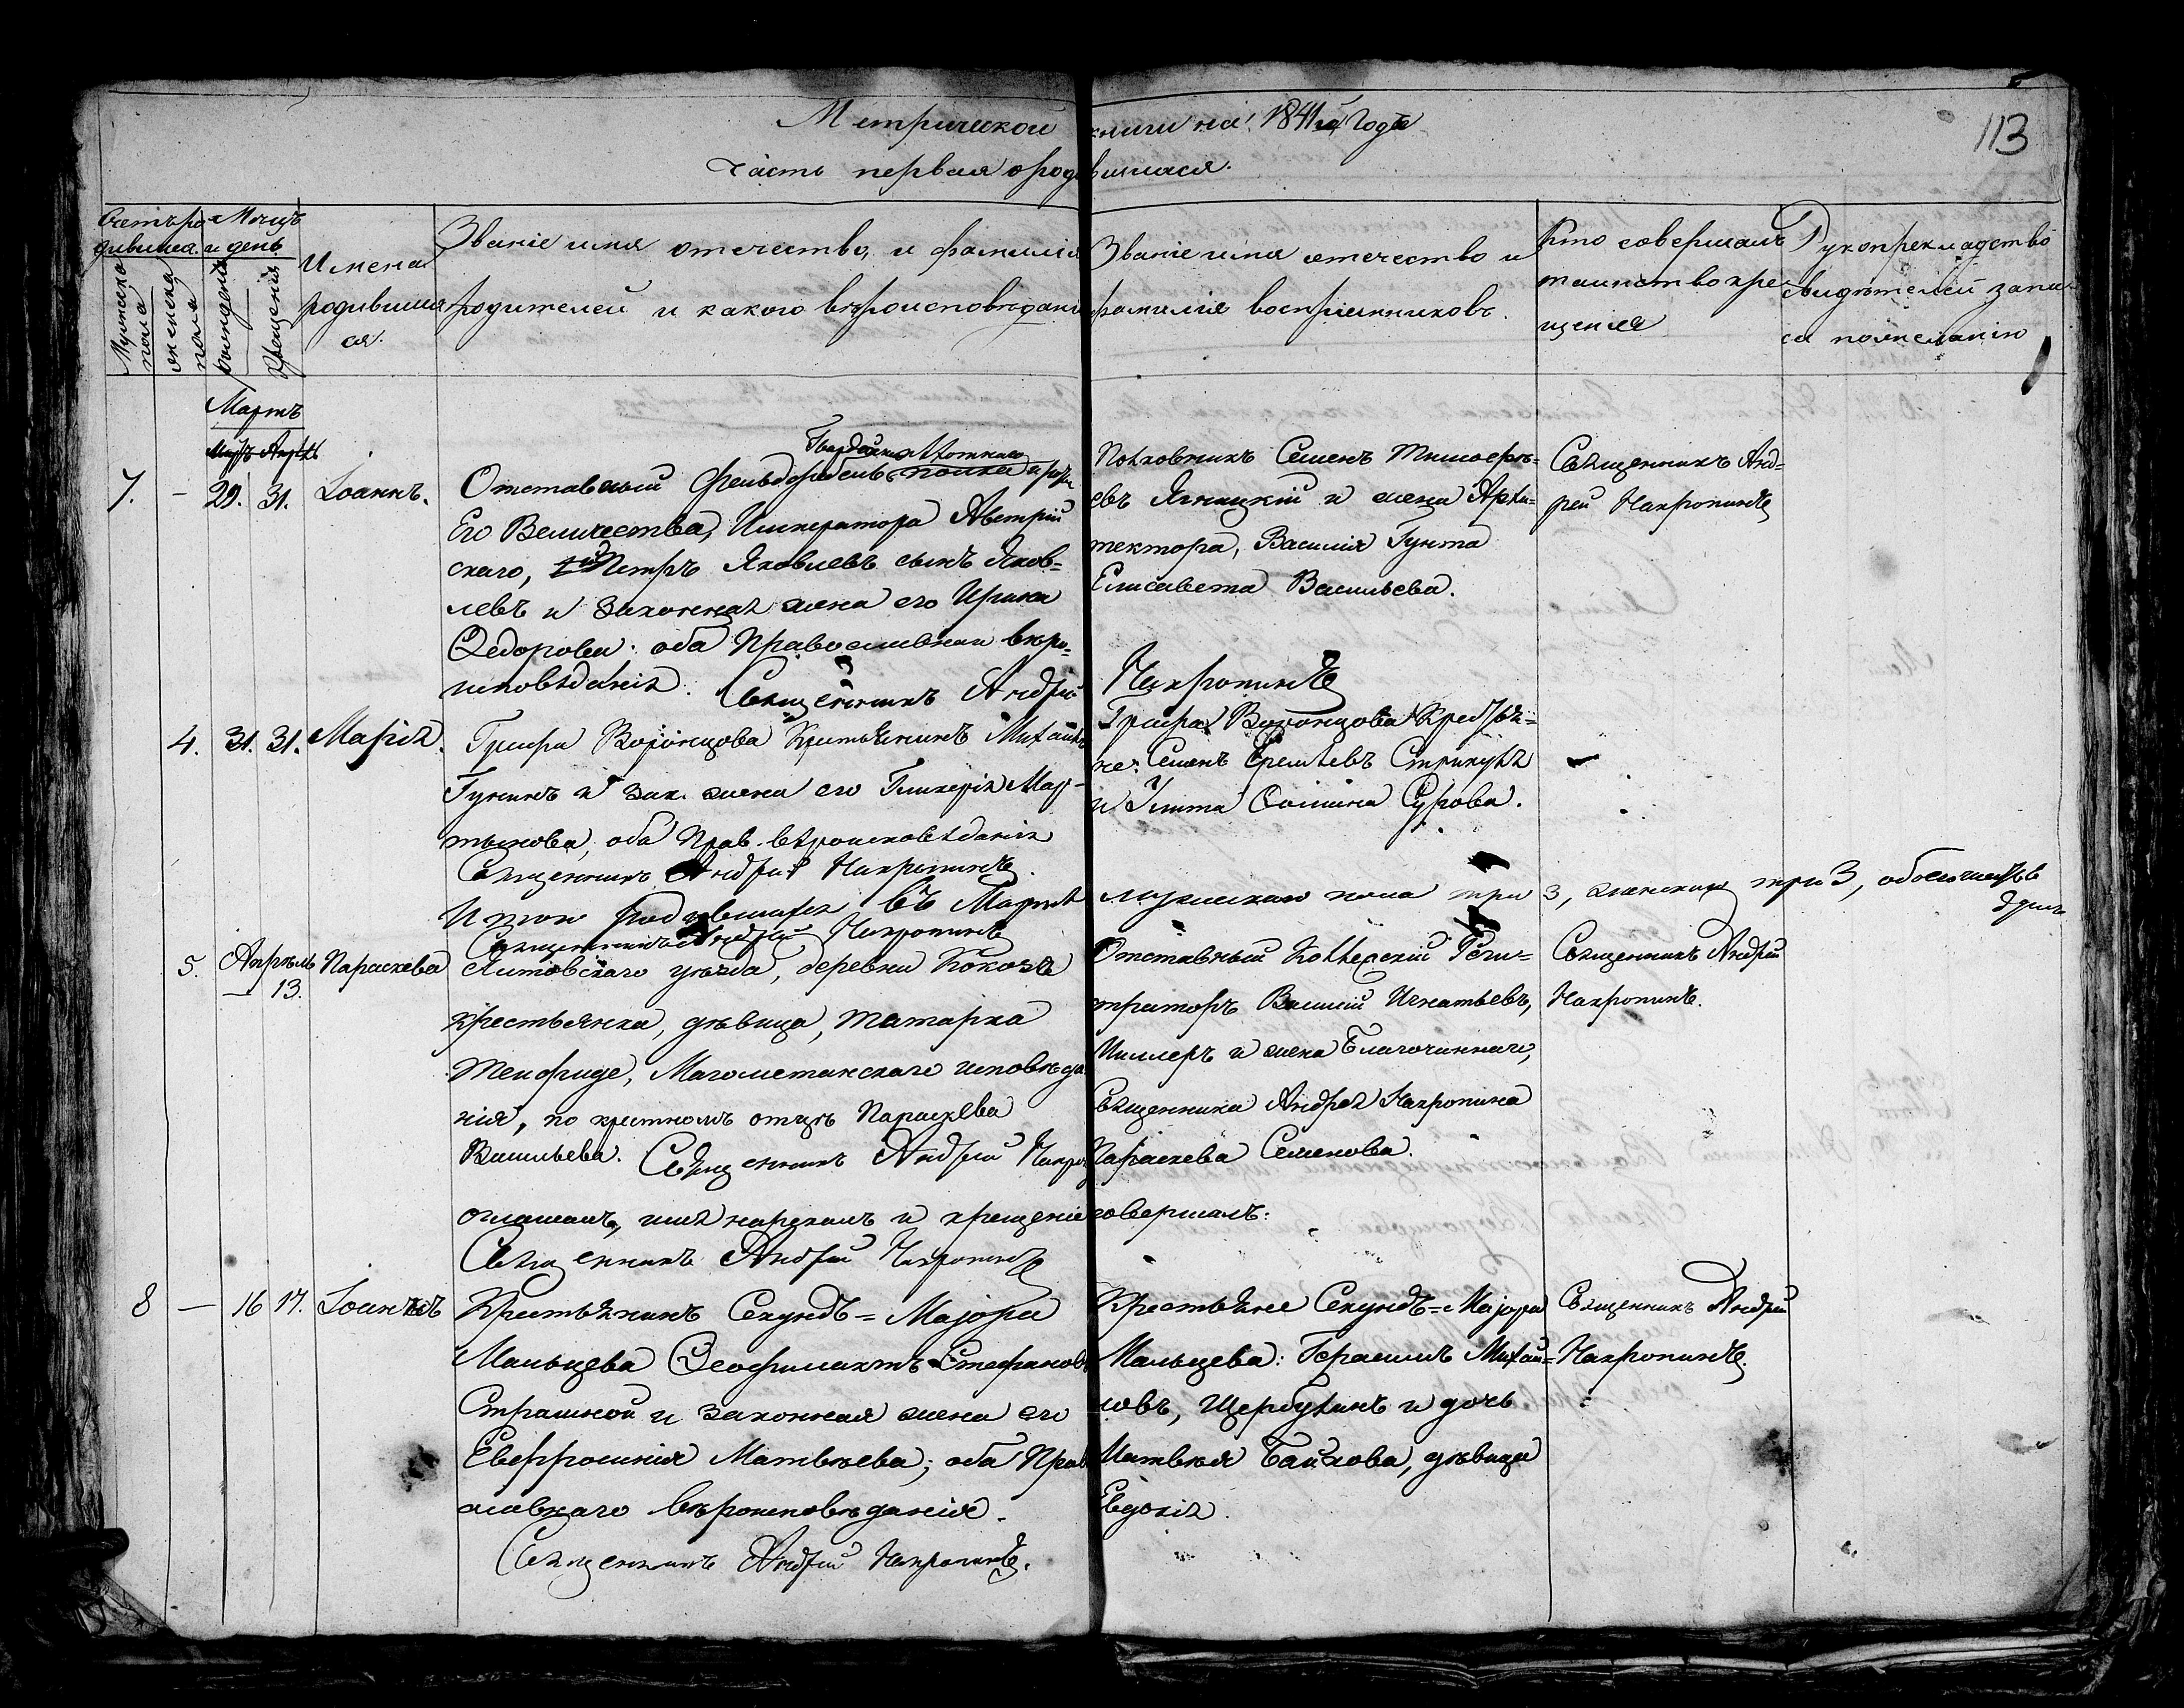 Метрической книги на 1841й Годъ
113
часть первая о родившихся.
Счетъ родившихся.
Мѣсяцъ и день.
Мужеска пола
женска пола
рожденія
Крещенія
Имена родившихся.
Званіе имя отечество, и фамилія
родителей и какого вѣроисповѣданія
Званіе имя отечество и
фамилія воспріемниковъ.
Кто совершалъ
таинство кре-
щенія
Рукоприкладство
свидѣтелей запи-
си по желанію
Мартъ
7. – 29. 31. Іоаннъ.
Отставный фельдфебель
Его Величества, Императора Австрій
скаго, Петръ Яковлевъ сынъ Яков=
левъ и законная жена его Ирина
Ѳедорова. оба Православнаи вѣро=
исповѣданія. Священникъ Андрей Накропинъ
Полковникъ Семенъ Тимофеѣ-
евъ Ягницкій и жена Архи=
тектора, Василія Гунта
Елисавета Васильева.
Священникъ Анд=
рей Накропинъ
4. 31. 31. Марія.
Графа Воронцова Крестьянинъ Михаилъ
Гунинъ и зак. жена его Гликерія Мар-
тынова, оба Прав. вѣроисповѣданія
Священникъ Андрей Накропинъ.
Графа Воронцова Крестья=
не: Семенъ Еремѣевъ
и Улита Сурова.
Итого родившихся въ Мартѣ мужескаго пола три 3, женскаго три 3, обоего шесть 6
Священникъ Андрей Накропинъ
5. Апрѣль — 13. Параскева
Ялтовскаго уѣзда, деревни Кокозъ
крестьянка, дѣвица, татарка
Магометанскаго исповѣда
нія, по крестномъ отцѣ Параскева
Васильева. Священникъ Андрей Накро
оглашалъ, имя нарекалъ и крещеніе совершалъ:
Священникъ Андрей Накропинъ
Отставный Коллежскій Реги=
страторъ Василій Игнатьевъ,
Миллеръ и жена Благочиннаго,
Священника Андрея Накропина
Параскева Семенова.
Священникъ Андрей
Накропинъ.
8 — 16 17. Іоаннъ
Крестьянинъ Секундъ = Маіора
Мальцева Ѳеофилактъ Стефановъ
Страшной и законная жена его
Евфросинія Матвѣева; оба Прав
ославнаго вѣроисповѣданія.
Священникъ Андрей Накропинъ.
Крестьяне Секундъ = Маіора
Мальцева: Герасимъ Михай=
ловъ, Щербулинъ и дочь
Матвѣя Байкова, дѣвица
Евдокія.
Священникъ Андрей
Накропинъ.